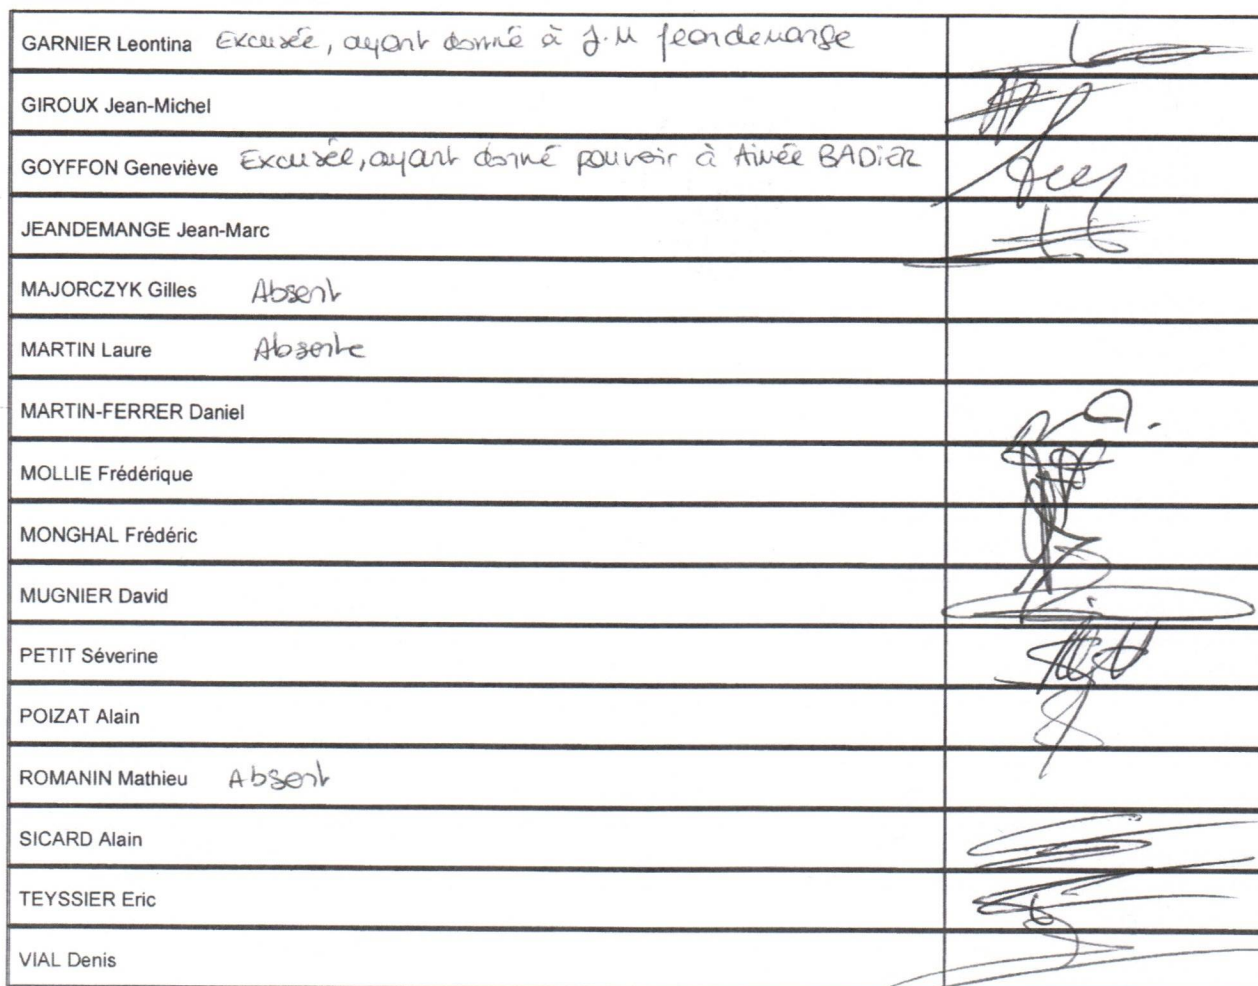 GARNIER Leontina Excusée, ayant donné à J.M Jeandemange
GIROUX Jean-Michel
GOYFFON Geneviève Excusée, ayant donné pouvoir à Aimée BADIER
JEANDEMANGE Jean-Marc
MAJORCZYK Gilles Absent
MARTIN Laure Absente
MARTIN-FERRER Daniel
MOLLIE Frédérique
MONGHAL Frédéric
MUGNIER David
PETIT Séverine
POIZAT Alain
ROMANIN Mathieu Absent
SICARD Alain
TEYSSIER Eric
VIAL Denis